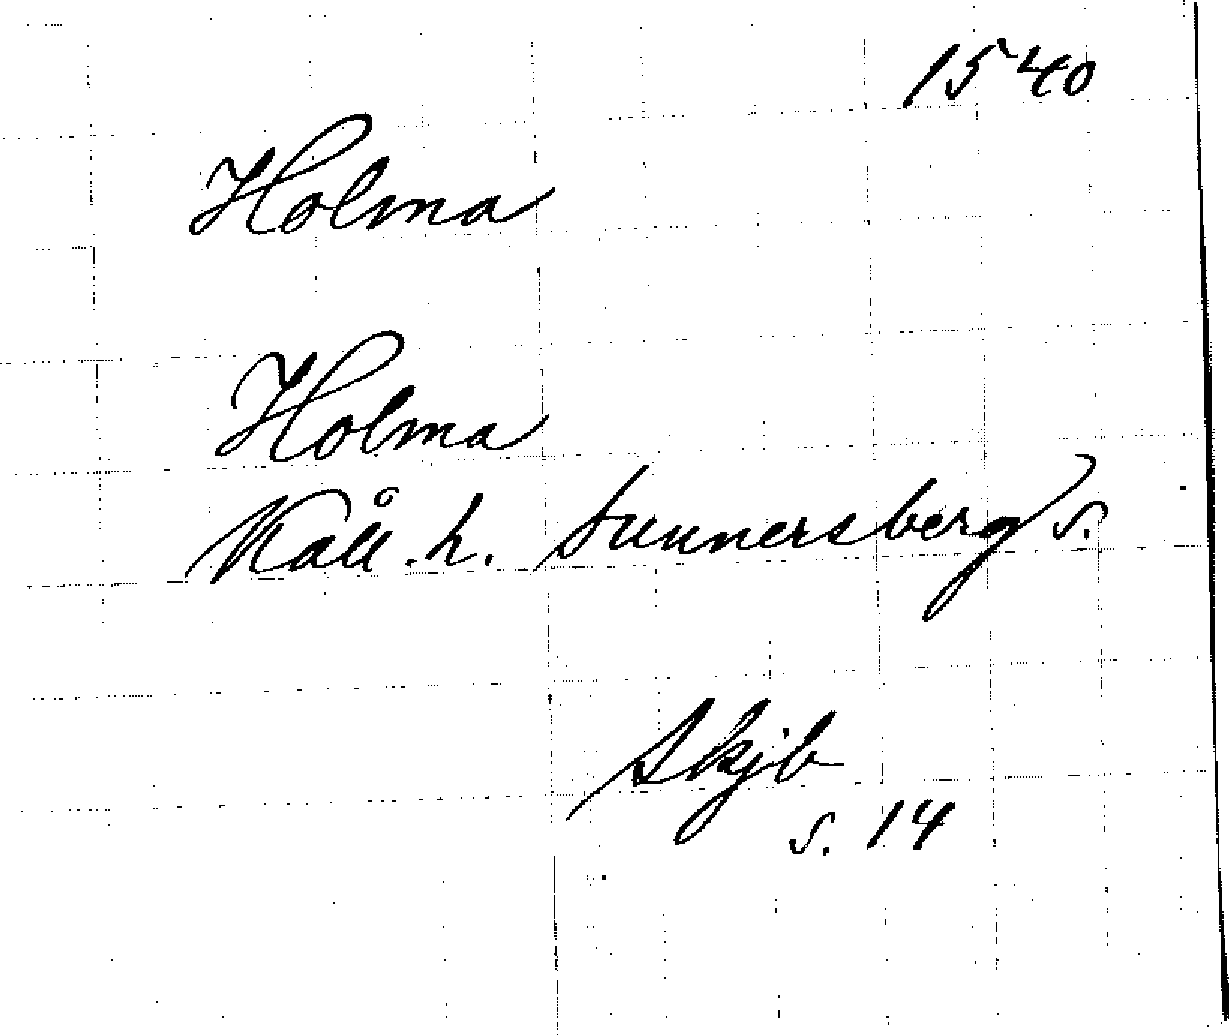 1540
Holma
Holma
Kåll. h. Sunnersberg s.
Skjb
s. 14